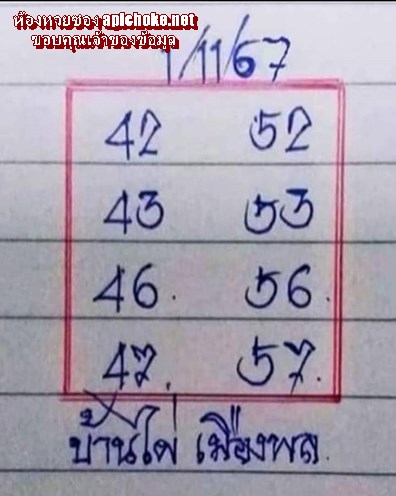 ห้องหวยซอง aplchoke.net
ขอบคุณเจ้าของข้อมูล
1/11/67
42 52
43 53
46. 56.
47. 57.
บ้านไผ่ เมืองพล.